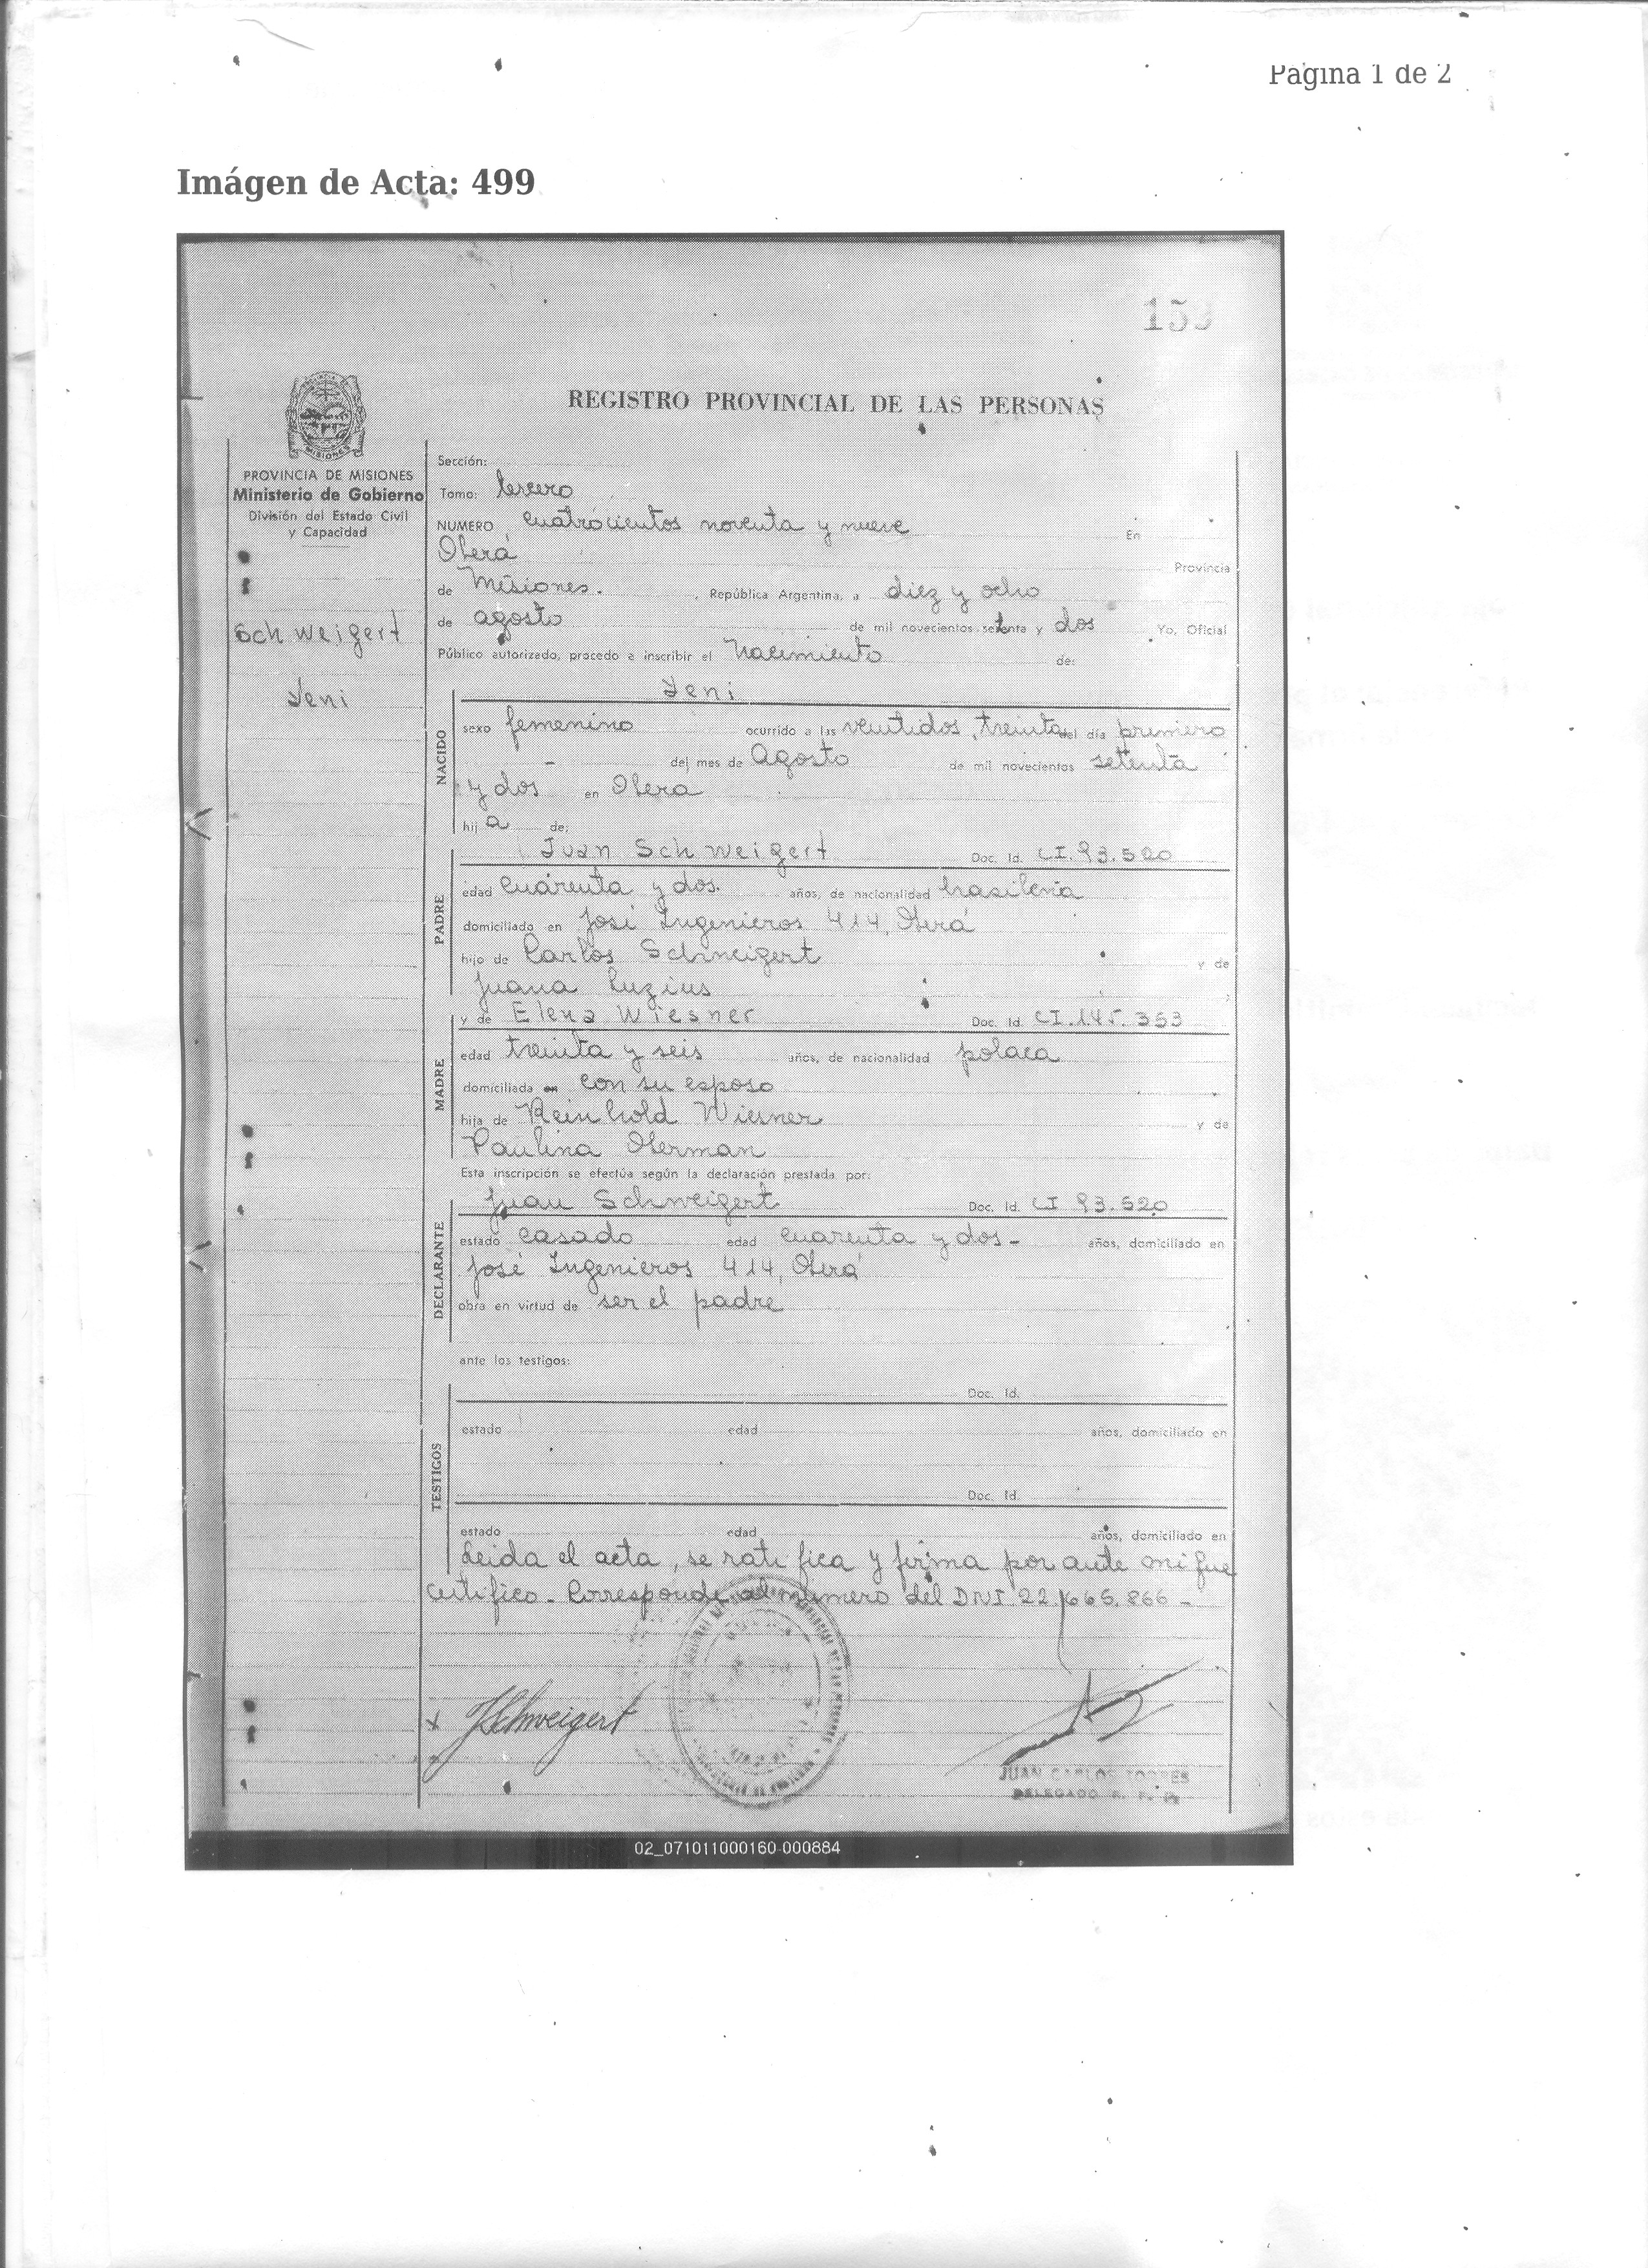 Página 1 de 2
Imágen de Acta: 499
REGISTRO PROVINCIAL DE LAS PERSONAS
MISIONES
PROVINCIA DE MISIONES
Ministerio de Gobierno
División del Estado Civil
y Capacidad
Schweigert
Yeni
Sección:
Tomo: tercero
NUMERO cuatrocientos noventa y nueve En
Oberá Provincia
de Misiones. , República Argentina, a diez y ocho
de agosto de mil novecientos setenta y dos Yo, Oficial
Público autorizado, procedo a inscribir el Nacimiento de:
Yeni
NACIDO
sexo femenino ocurrido a las ventidos, treinta del día primero
- del mes de Agosto de mil novecientos setenta
y dos en Obera
hij a de:
PADRE
Juan Schweigert Doc. Id. CI. 93.520
edad cuarenta y dos. años, de nacionalidad brasileña
domiciliado en José Ingenieros 414, Oberá
hijo de Carlos Schweigert y de
Juana Luzius
MADRE
y de Elena Wiesner Doc. Id. CI. 145.353
edad treinta y seis años, de nacionalidad polaca
domiciliada en con su esposo
hija de Reinhold Wiesner y de
Paulina Oberman
Esta inscripción se efectúa según la declaración prestada por:
DECLARANTE
Juan Schweigert Doc. Id. CI 93.520
estado casado edad cuarenta y dos - años, domiciliado en
José Ingenieros 414, Oberá
obra en virtud de ser el padre
ante los testigos:
TESTIGOS
Doc. Id.
estado edad años, domiciliado en
Doc. Id.
estado edad años, domiciliado en
Leida el acta, se ratifica y firma por ante mi que
certifico - Corresponde al número del DNI 22.665.866 -
JSchweigert
JUAN CARLOS TORRES
DELEGADO R. P. P.
02_071011000160-000884